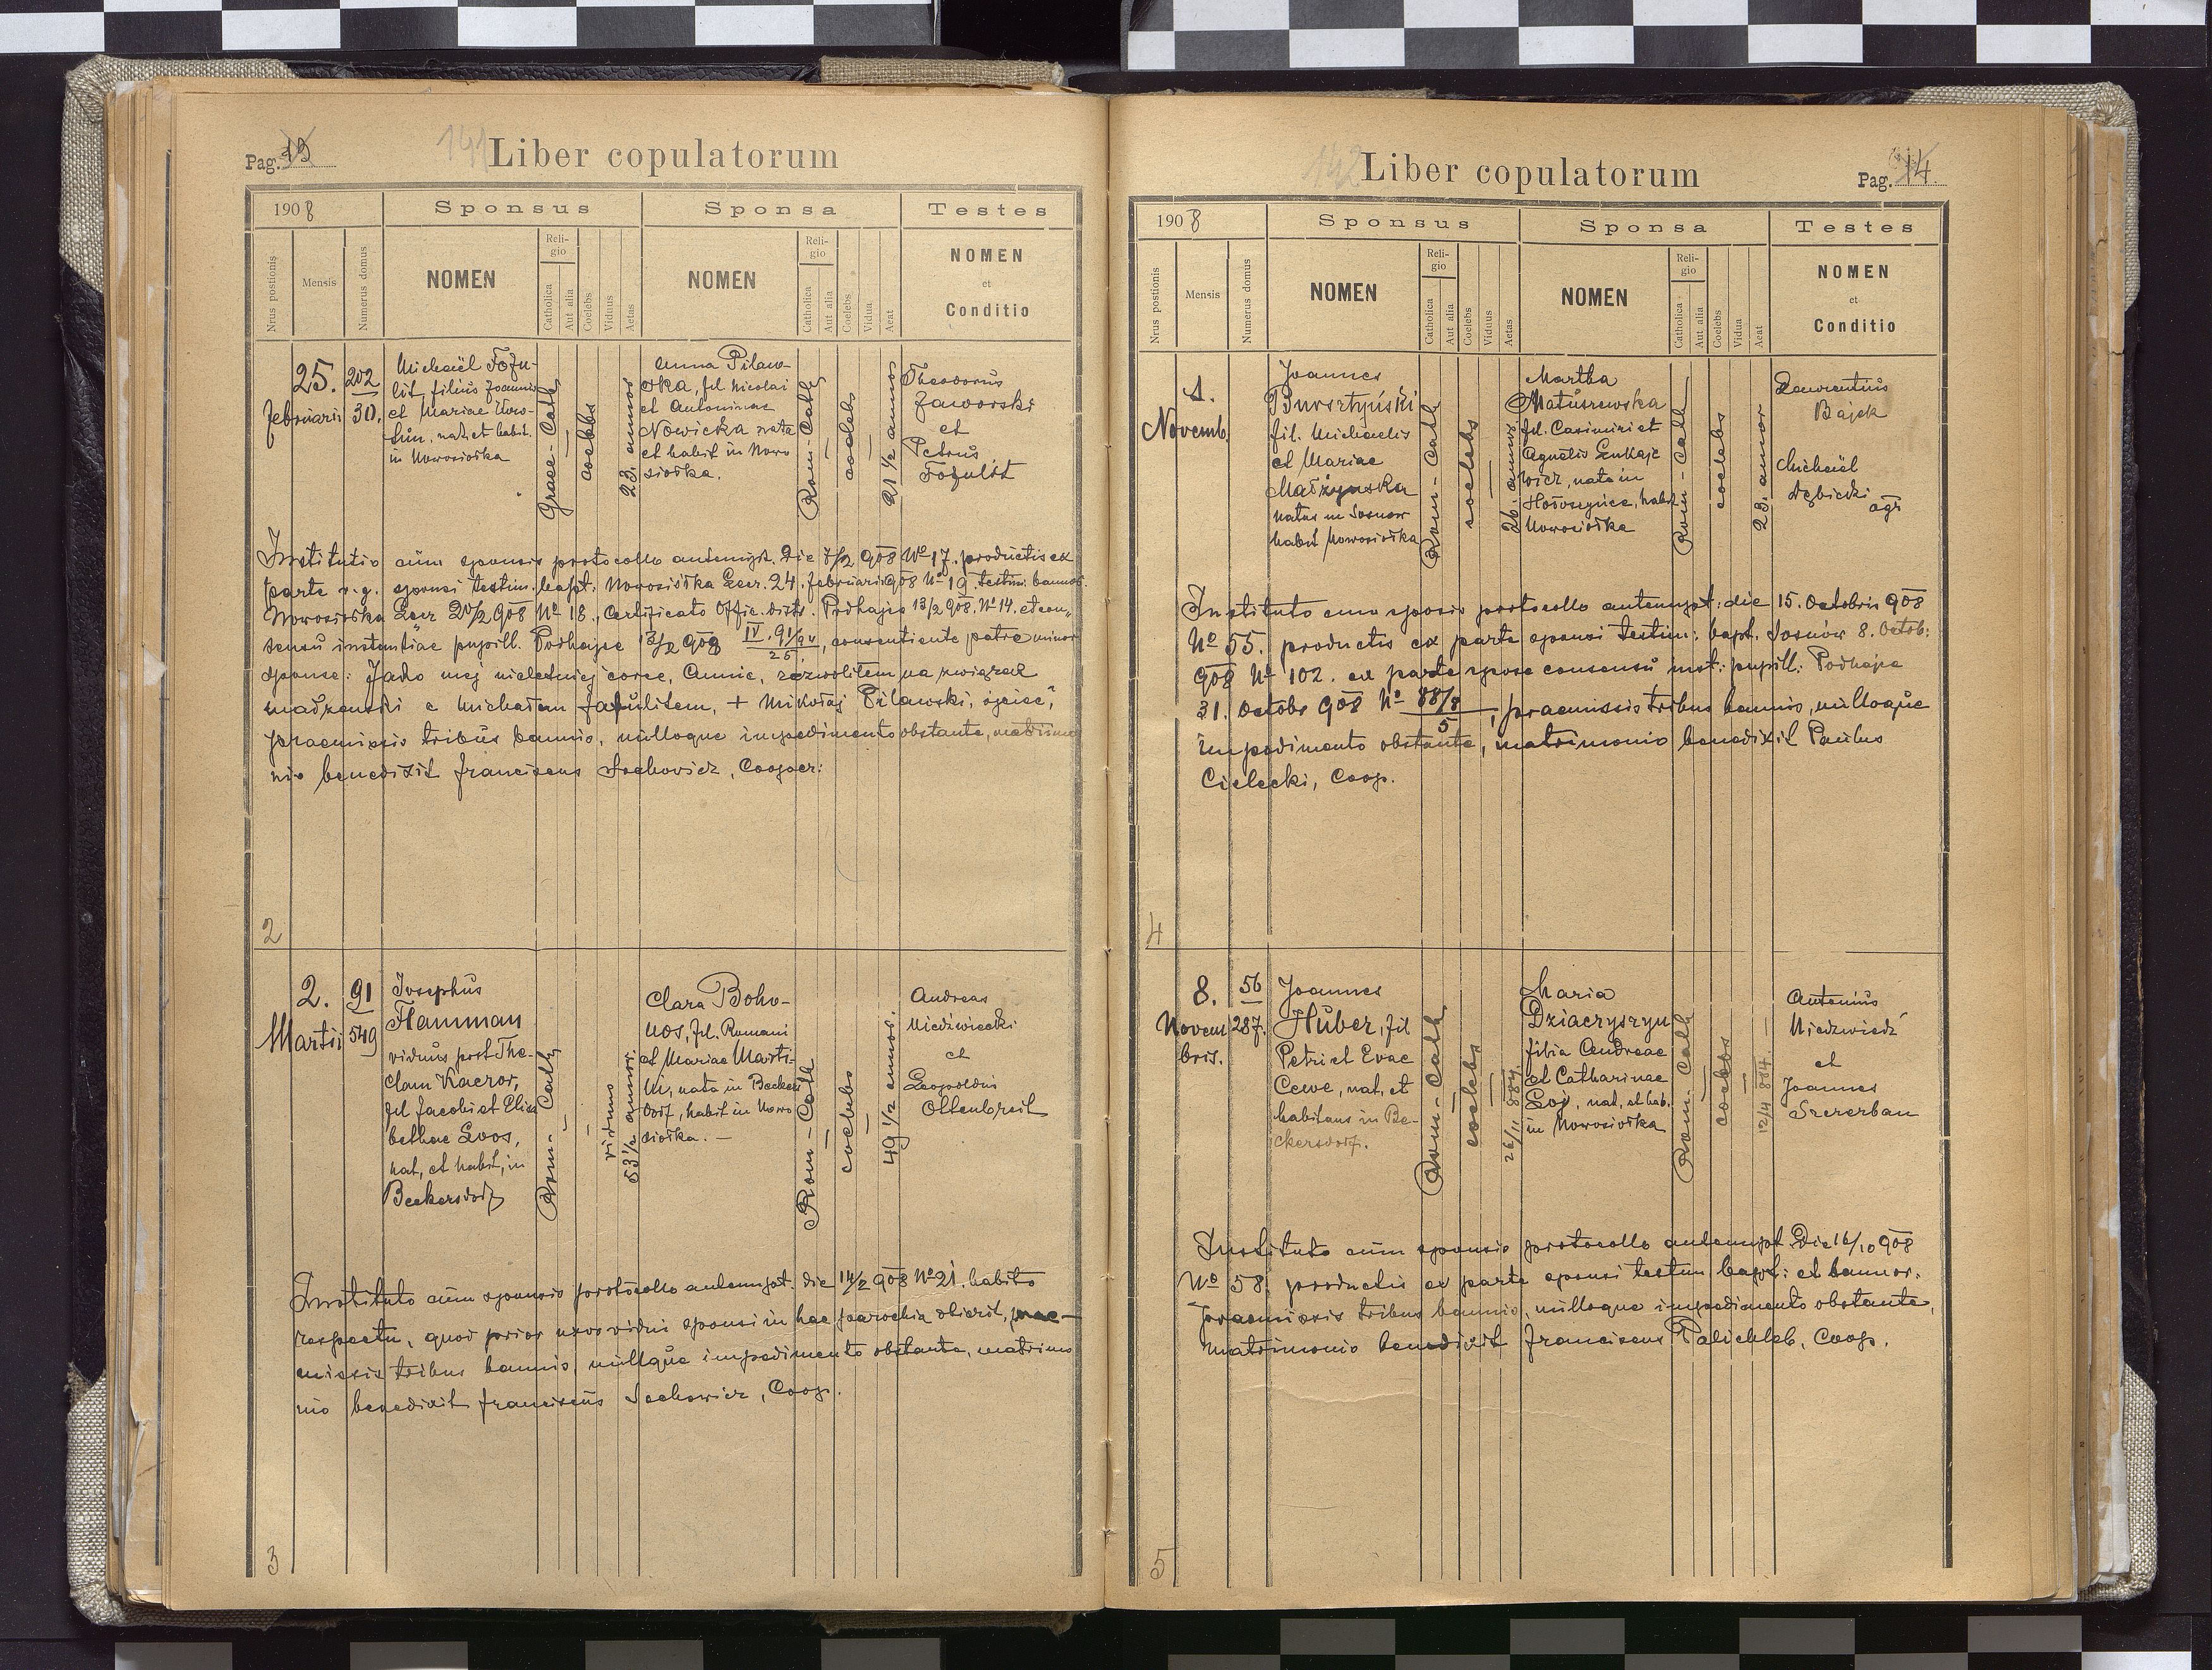 Pag. 13
141
Liber copulatorum
1908
Sponsus
Sponsa
Testes
Nrus postionis
Mensis
Numerus domus
NOMEN
Religio
Catholica
Aut alia
Coelebs
Viduus
Aetas
NOMEN
Religio
Catholica
Aut alia
Coelebs
Vidua
Aeat
NOMEN
et
Conditio
25.
Februarii
202
30.
Michaël Fozu-
lit filius Joannis
et Mariae
nat. et habit.
in Nowosiołka
Graec- Cath
coelebs
23. annor
Anna Pilaw-
ska, fil Nicolai
et Antoninae
Nowicka nata
et habit in Nowo
siołka.
Rom- Cath
coelebs
21 1/2 annor
Theodorus
Jaworski
et
Petrus
Fozulit
Instituto cum sponsis protocollo antenupt. Die 7/2 908 No 17. productis ex
parte sponsi testim. bapt: Nowosiołka 24. februarii 908 No 19. testim. bannor.
Nowosiołka 20/2 908 No 18., Certificato Offic. distr. Podhajce 13/2 908. No 14. et con-
sensu instantiae pupill. Podhajce 13/2 908 IV. 91/94 / 25, consentiente patre minor
sponse: Jako mej nieletniej córce, Annie, zezwolitem na związek
małżeński z Michałem Fozulitem, + Mikołaj Pilawski, ojciec",
praemissis tribus bannis, nulloque impedimento obstante, matrimo
nio benedixit Franciscus Sochowicz, Cooper:
2
2.
Martii
91
549
Josephus
Flamman
viduus post The-
clam Kaczor,
fil Jacobi et Elisa
bethae Loos,
nat, et habit, in
Beckersdorf
Rom- Cath
viduus
53 1/2 annor.
Clara Boho-
nos, fil. Romani
et Mariae Marti-
ni, nata in Beckers
dorf, habit in Nowo
siołka. —
Rom- Cath
coelebs
49 1/2 annor.
Andreas
Niedzwiecki
et
Leopoldus
Oltenbreit
Instituto cum sponsis protocollo antenupt. die 14/2 908 No 21. habito
respectu, quod prior uxor vidui sponsi in hac parochia obierit, prae-
missis tribus bannis, nulloque impedimento obstante, matrimo
nio benedixit Franciscus Sochowicz, Coop.
3
142
Liber copulatorum
Pag. 14.
1908
Sponsus
Sponsa
Testes
Nrus postionis
Mensis
Numerus domus
NOMEN
Religio
Catholica
Aut alia
Coelebs
Viduus
Aetas
NOMEN
Religio
Catholica
Aut alia
Coelebs
Vidua
Aeat
NOMEN
et
Conditio
1.
Novemb.
Joannes
Bursztyński
fil. Michaelis
et Mariae
natus in Sosnow
habit Nowosiołka
Rom- Cath
coelebs
26. annor
Martha
Matuszewska
fil. Casimiri et
Agnetis Łukaje
wicz, nata in
habit
Nowosiołka
Rom- Cath
coelebs
23. annor
Laurentius
Bajek
Michaël
agr
Instituto cum sponsis protocollo antenupt: die 15. Octobris 908
No 55. productis ex parte sponsi testim: bapt. Sosnów 8. Octob:
908 No 102. ex parte spose consensu inst: pupill: Podhajce
31. Octobr 908 No 88/8 / 5, praemissis tribus bannis, nulloque
impedimento obstante, matrimonio benedixit Paulus
Cielecki, Coop.
4
8.
Novem
bris.
56
287.
Joannes
Huber, fil
Petri et Evae
Cewe, nat, et
habitans in Be-
ckersdorf.
Rom- Cath
coelebs
26/11 884.
Maria
Dziaczyszyn
filia Andreae
et Catharinae
nat, et hab.
in Nowosiołka
Rom- Cath
coelebs
12/4 884.
Antonius
Niedzwiedź
et
Joannes
Szczerban
Instituto cum sponsis protocollo antenupt Die 16/10 908
No 58. productis ex parte sponsi testim bapt: et bannor.
praemissis tribus bannis, nulloque impedimento obstante,
matrimonio benedixit Franciscus Palichleb, Coop.
5